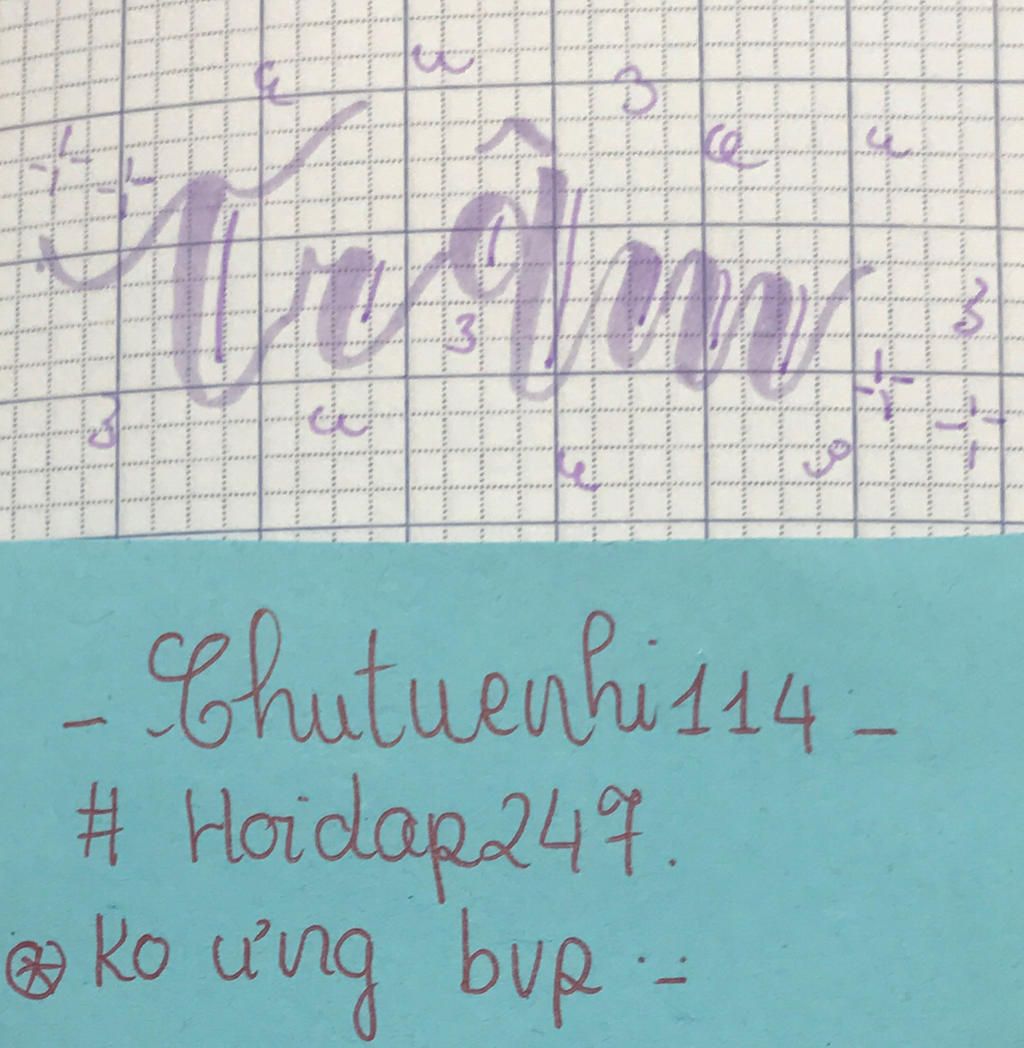 Trâm
- Chutuenhi114 -
# Hoidap247.
Ko ưng bvp :-